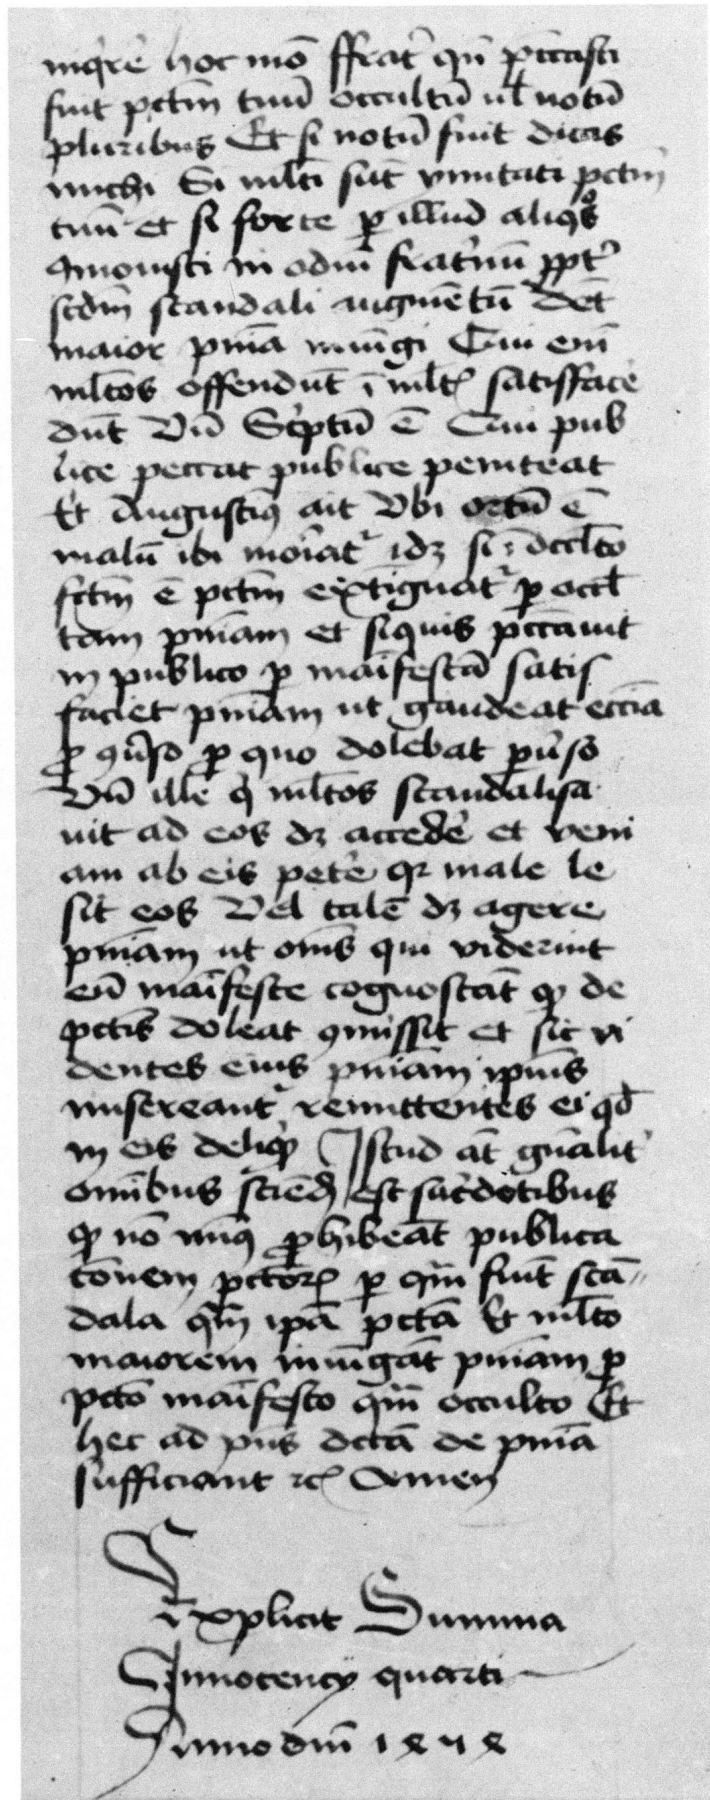 inq̄rē hoc mō ffrat̄ qn̄ pccasti
fuit pctm̄ tuū occultū ul̄ notū
pluribus Et si notū fuit dicas
michi Si ml̄ti sūt vnitati pctm̄
tuū et si forte ꝑ illud aliqͦs
ꝯmouisti in odiū frat̄nū ꝓpt̄
scdm̄ scandali augmētū dēt
maior pn̄ia iniūgi Cui enī
ml̄tos offendūt ī ml̄tꝭ satisfacē
dūt Vn̄ Sc̄ptū ē Cui pub
lice peccat publice peniteat
Et Augustinꝰ ait Vbi ortū ē
malū ibi moriat᷑ idꝫ si ī occl̄to
fctm̄ ē pctm̄ extīguat᷑ ꝑ occl̄
tam pn̄iam et siquis pccauit
in publico ꝑ maīfestā satis
faciet pn̄iam ut gaudeat eccīa
ꝓ ꝯūso ꝓ quo dolebat ꝑūso
Vn̄ ille qͥ ml̄tos scandalisa
uit ad eos dꝫ accedē̄ et veni
am ab eis petē̄ qꝛ male le
sit eos Vel talē dꝫ agere
pn̄iam ut om̄s qui viderint
eū maīfeste cognoscāt ꝙ de
pctīs doleat ꝯmissit et sic vi
dentes eius pn̄iam ip̄ius
misereant᷑ remittentes ei qd̄
in eis deliqͥt Istud āt gn̄alit̄
om̄ibus sciēdū est sac̄dotibus
ꝙ nō nimiꝰ ꝓhibeāt publica
cōnem pctoꝝ ꝑ qm̄ fiūt scā-
dala qm̄ ip̄a pctā Et ml̄to
maiorem iniūgāt pn̄iam ꝓ
pcto maīfesto qm̄ occulto Et
hec ad pn̄s dctā de pn̄ia
sufficiant ⁊cꝭ Amen
Explicit Summa
Innocency quarti
Anno dn̄i 1848